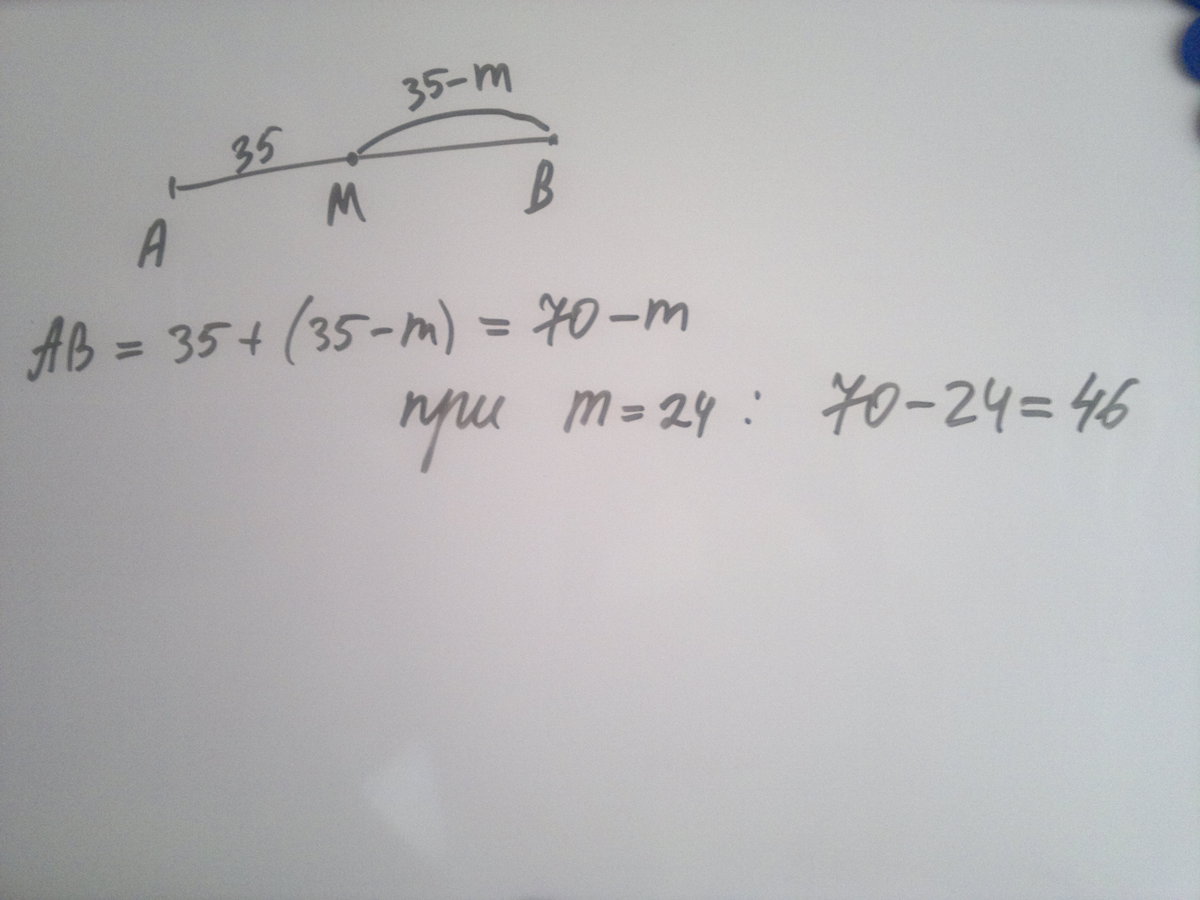 35-m
35
A
M
B
AB = 35 + (35-m) = 70-m
при m = 24 : 70-24=46